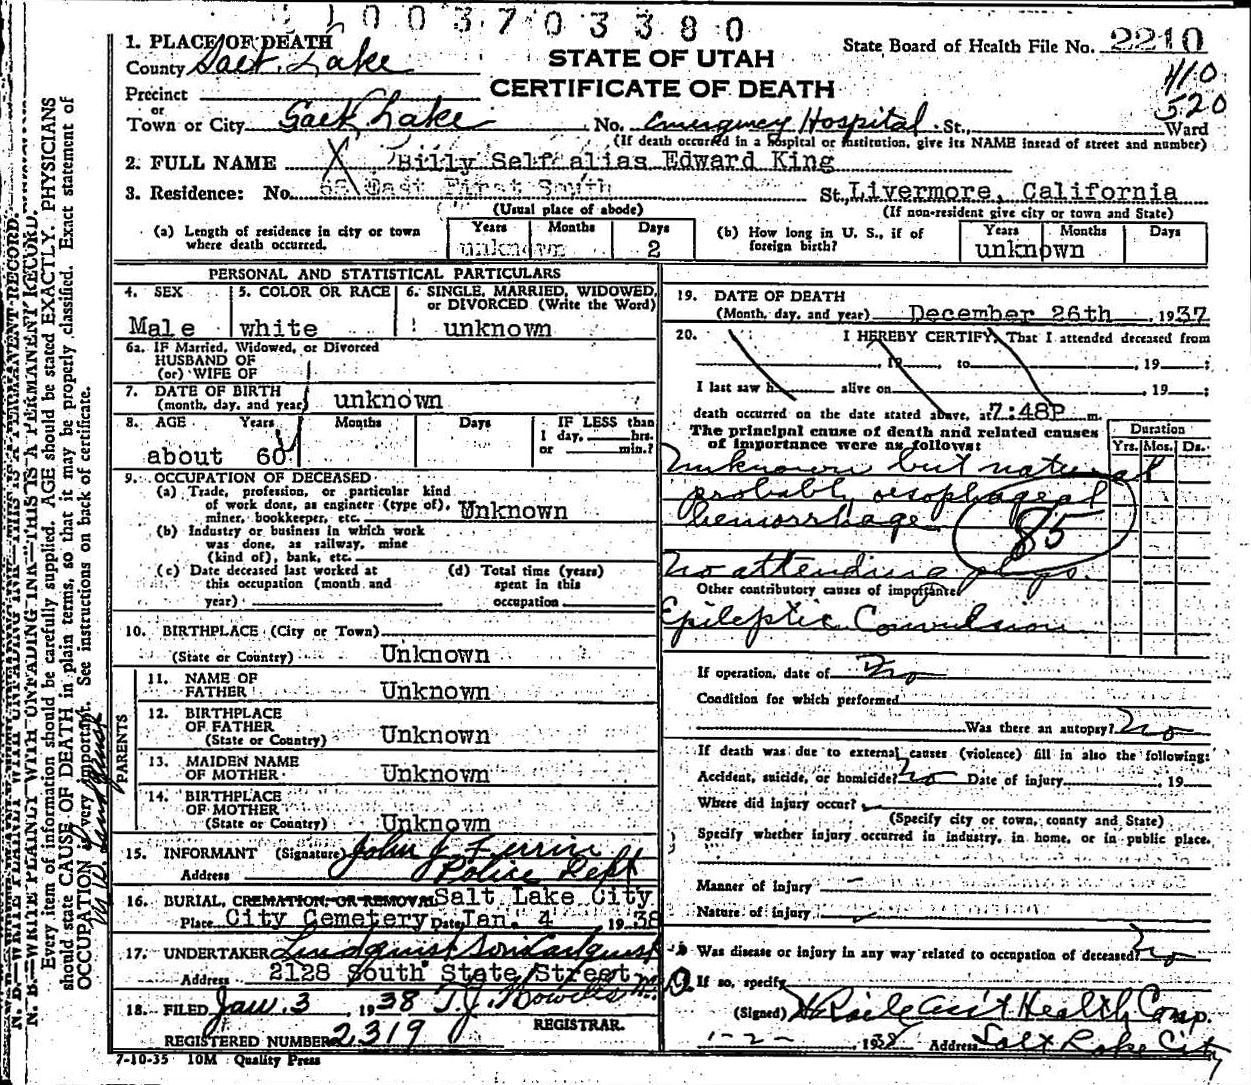 1003703380
1. PLACE OF DEATH
County Salt Lake
STATE OF UTAH
CERTIFICATE OF DEATH
State Board of Health File No. 2210
410
520
Precinct
or
Town or City Salt Lake No. Emergency Hospital St., Ward
(If death occurred in a hospital or institution, give its NAME instead of street and number)
2. FULL NAME Billy Self alias Edward King
3. Residence: No. 65 East First South St., Livermore, California
(Usual place of abode) (If non-resident give city or town and State)
(a) Length of residence in city or town where death occurred. Years unknown Months Days 2
(b) How long in U. S., if of foreign birth? Years unknown Months Days
PERSONAL AND STATISTICAL PARTICULARS
4. SEX Male
5. COLOR OR RACE white
6. SINGLE, MARRIED, WIDOWED, or DIVORCED (Write the Word) unknown
6a. IF Married, Widowed, or Divorced
HUSBAND OF
(or) WIFE OF
7. DATE OF BIRTH
(month, day, and year) unknown
8. AGE Years Months Days IF LESS than
1 day, hrs.
or min.?
about 60
9. OCCUPATION OF DECEASED
(a) Trade, profession, or particular kind
of work done, as engineer (type of),
miner, bookkeeper, etc. Unknown
(b) Industry or business in which work
was done, as railway, mine
(kind of), bank, etc.
(c) Date deceased last worked at
this occupation (month and
year)
(d) Total time (years)
spent in this
occupation
10. BIRTHPLACE (City or Town)
(State or Country) Unknown
PARENTS
11. NAME OF
FATHER Unknown
12. BIRTHPLACE
OF FATHER
(State or Country) Unknown
13. MAIDEN NAME
OF MOTHER Unknown
14. BIRTHPLACE
OF MOTHER
(State or Country) Unknown
15. INFORMANT (Signature) John J Ferrin
Address Police Dept
16. BURIAL, CREMATION, OR REMOVAL Salt Lake City
Place City Cemetery Date Jan. 4 1938
17. UNDERTAKER Lindquist
Address 2128 South State Street
18. FILED Jan. 3 1938 T. J. Howells M.D.
REGISTRAR.
REGISTERED NUMBER 2319
7-10-35 10M Quality Press
19. DATE OF DEATH
(Month, day, and year) December 26th, 1937
20. I HEREBY CERTIFY, That I attended deceased from
, 19 , to , 19 ;
I last saw h alive on , 19 ;
death occurred on the date stated above, at 7:48P m.
The principal cause of death and related causes
of importance were as follows:
Duration
Yrs. Mos. Ds.
Unknown but natural
probably oesophageal
hemorrhage
85
No attending phys.
Other contributory causes of importance
Epileptic Convulsion
If operation, date of No
Condition for which performed
Was there an autopsy? No
If death was due to external causes (violence) fill in also the following:
Accident, suicide, or homicide? No Date of injury , 19
Where did injury occur?
(Specify city or town, county and State)
Specify whether injury occurred in industry, in home, or in public place.
Manner of injury
Nature of injury
Was disease or injury in any way related to occupation of deceased? No
If so, specify
(Signed) Ass't Health Comp.
1-2- , 1938 Address Salt Lake City
N. B.—WRITE PLAINLY WITH UNFADING INK—THIS IS A PERMANENT RECORD.
Every item of information should be carefully supplied. AGE should be stated EXACTLY. PHYSICIANS
should state CAUSE OF DEATH in plain terms, so that it may be properly classified. Exact statement of
OCCUPATION is very important. See instructions on back of certificate.